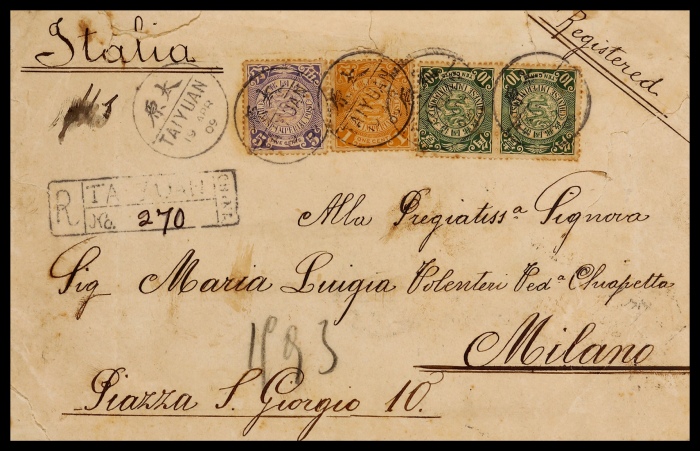 Italia
Registered
太原
TAIYUAN
19 APR
09
TAIYUAN
10 10
ONE CENT
R
TAIYUAN
CHINA
No. 270
Alla Pregiatissª Signora
Sig Maria Luigia Volenteri Vedª Chiapetta
Milano
193
Piazza S. Giorgio 10.